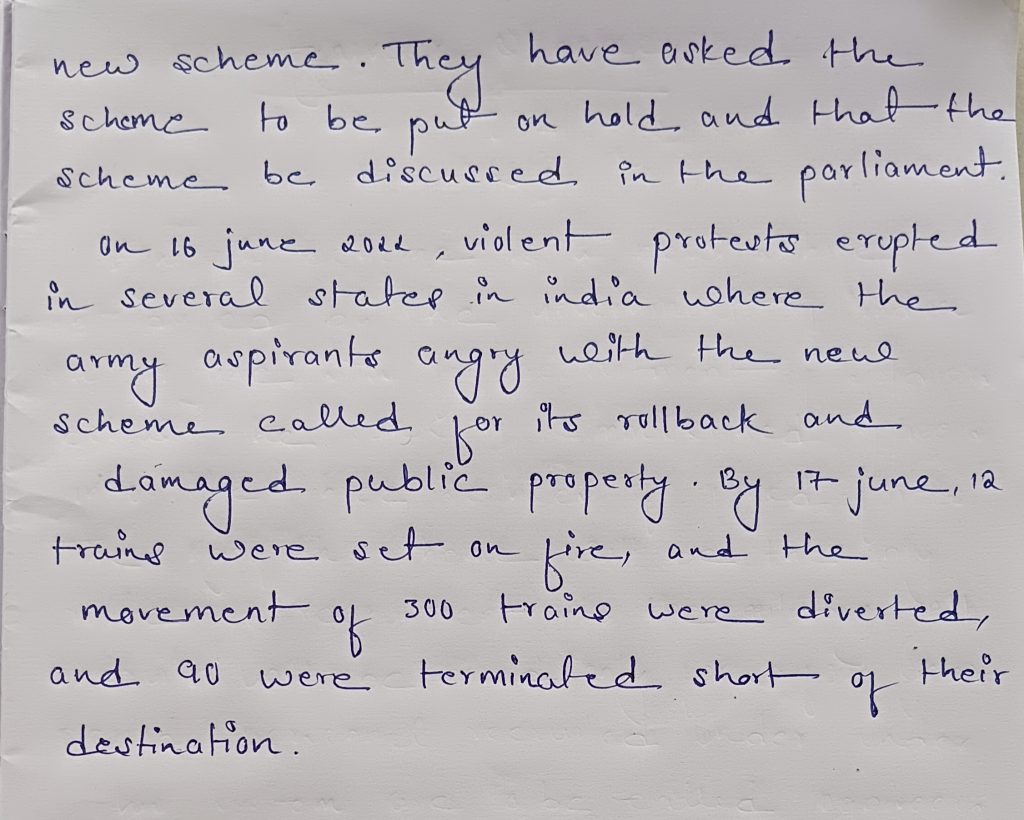 new scheme. They have asked the
scheme to be put on hold and that the
scheme be discussed in the parliament.
on 16 june 2022, violent protests erupted
in several states in india where the
army aspirants angry with the new
scheme called for its rollback and
damaged public property. By 17 june, 12
trains were set on fire, and the
movement of 300 trains were diverted,
and 90 were terminated short of their
destination.